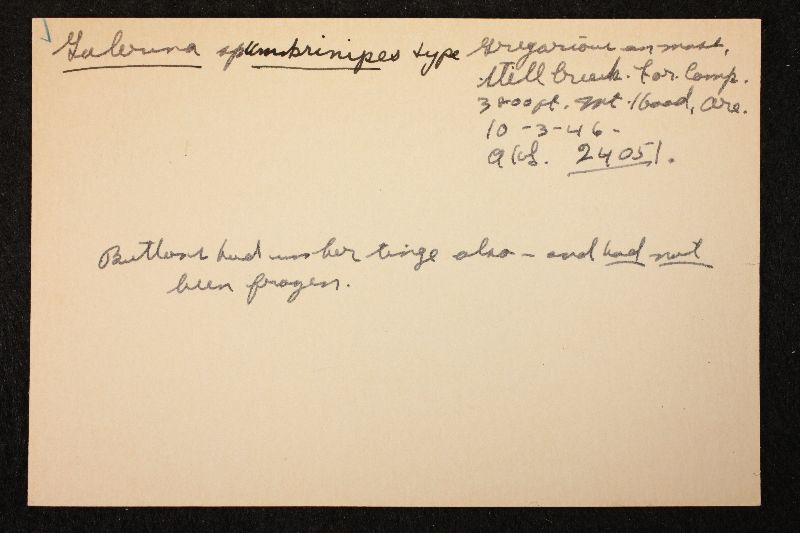 Galerina sp umbrinipes type
Gregarious on moss,
Still Creek. For. Camp.
3800 ft. Mt Hood, Ore.
10-3-46-
AHS. 24051.
Buttons had umber tinge also - and had not
been frozen.